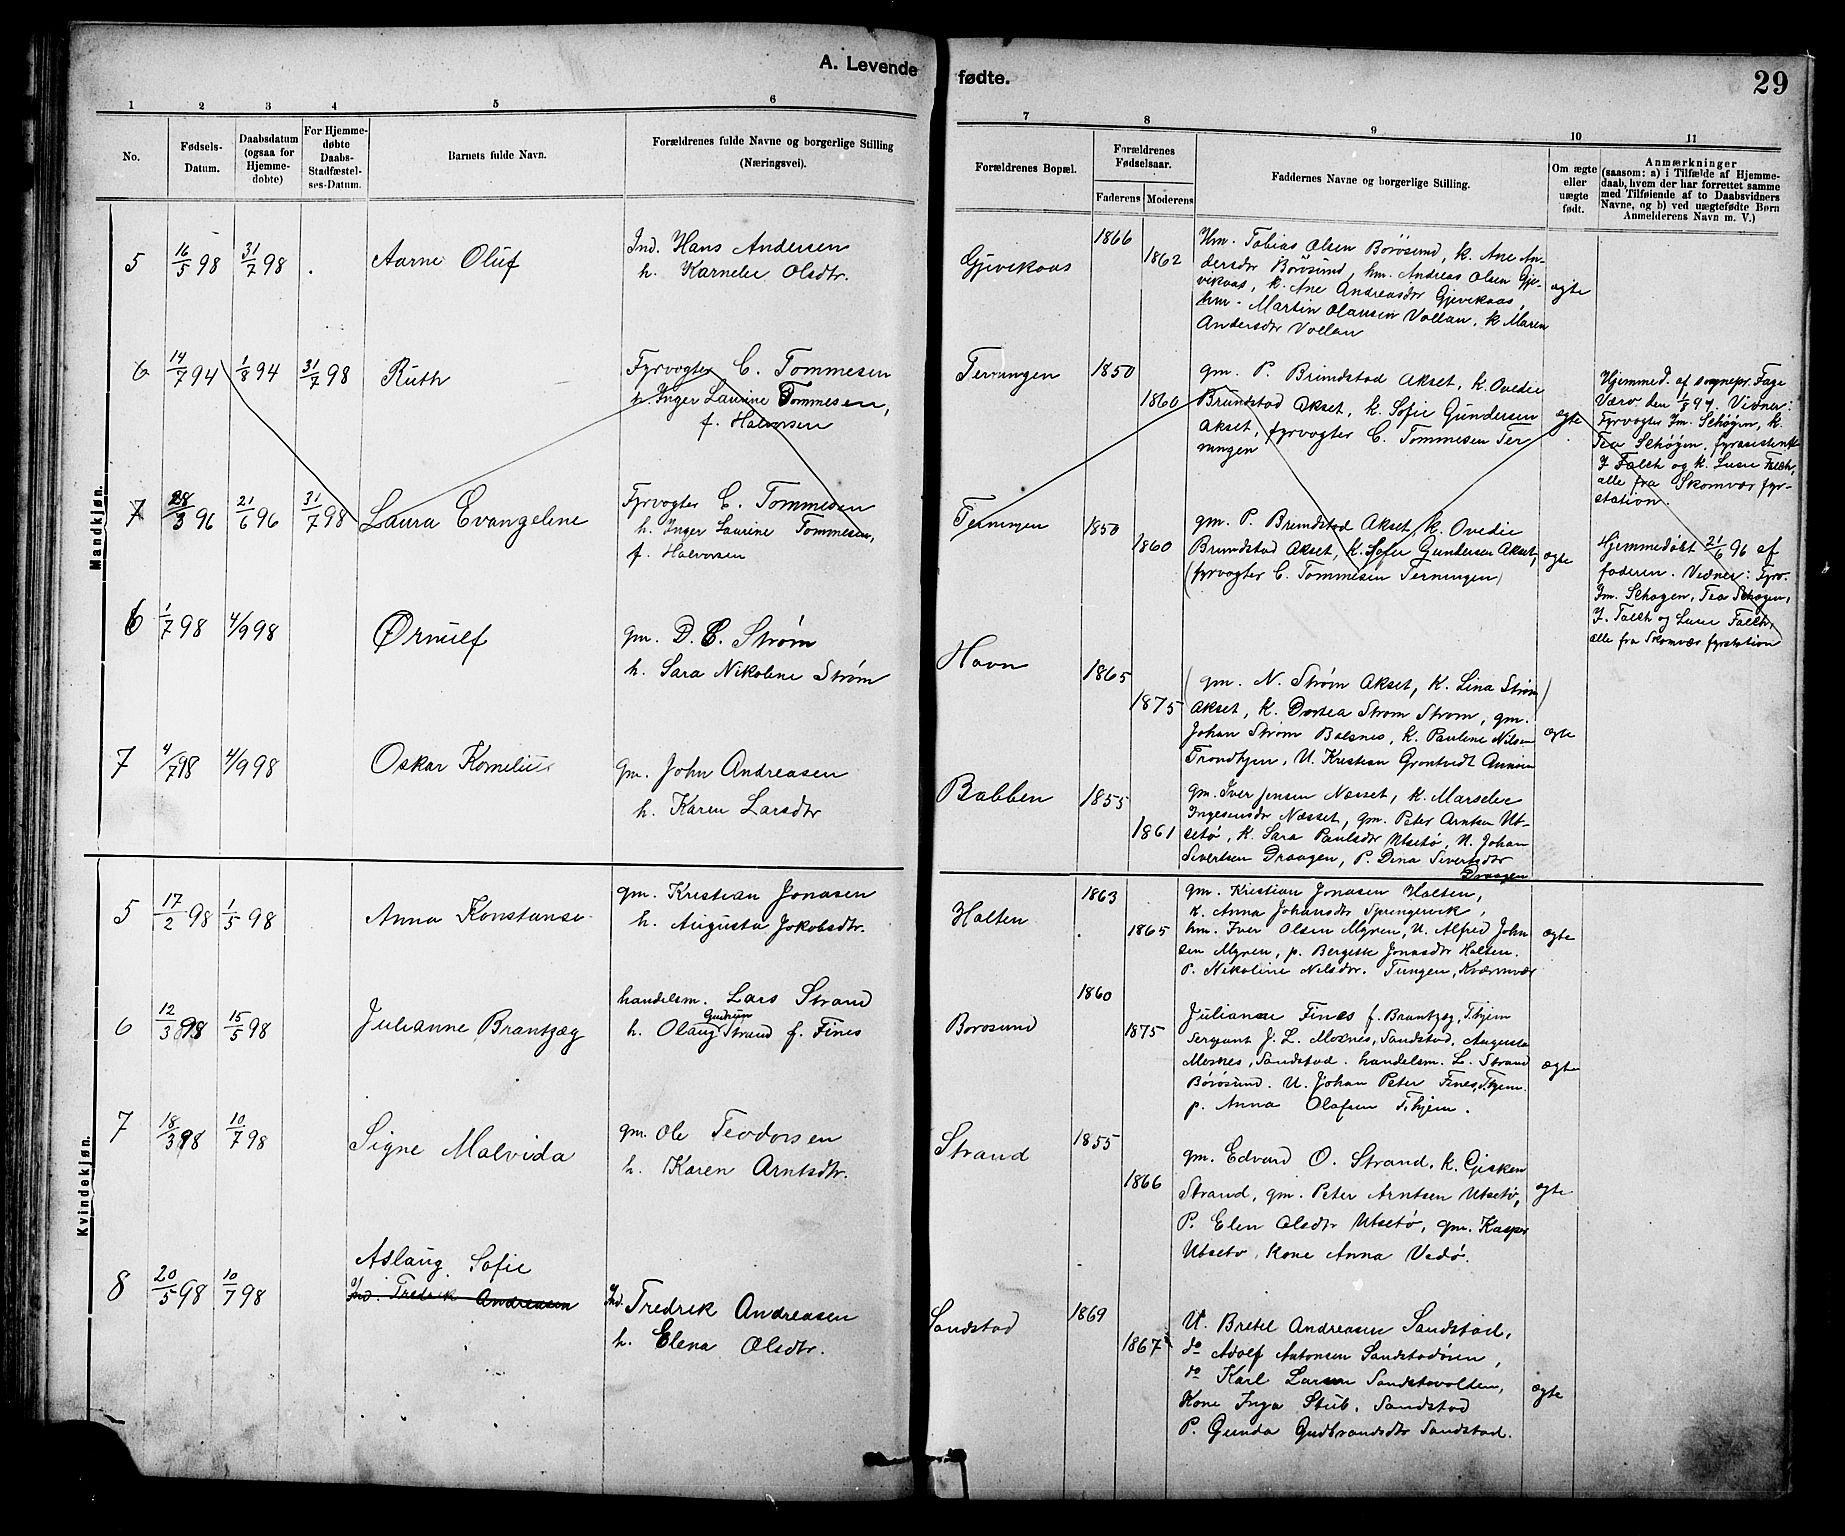 A. Levende fødte.
29
1 2 3 4 5 6 7 8 9 10 11
No.
Fødsels-
Datum.
Daabsdatum
(ogsaa for
Hjemme-
døbte)
For Hjemme-
døbte
Daabs-
Stadfæstel-
ses-Datum.
Barnets fulde Navn.
Forældrenes fulde Navne og borgerlige Stilling
(Næringsvei).
Forældrenes Bopæl.
Forældrenes
Fødselsaar.
Faderens Moderens
Faddernes Navne og borgerlige Stilling.
Om ægte
eller
uægte
født.
Anmærkninger
(saasom: a) i Tilfælde af Hjemme-
daab, hvem der har forrettet samme
med Tilføiende af to Daabsvidners
Navne, og b) ved uægtefødte Børn
Anmelderens Navn m. V.)
Mandkjøn.
5 16/5 98 31/7 98 Aarne Oluf
Ind. Hans Andersen
h. Karnelie Olsdtr.
Gjevekaas
1866
1862
Hm. Tobias Olsen Børøsund, k. Ane An-
dersdr Børøsund, hm. Andreas Olsen Gje-
vekaas, k. Ane Andreasdr Gjevekaas,
hm. Martin Olausen Vollan, k. Maren
Andersdr Vollan
ægte
6 14/7 94 1/8 94 31/7 98 Ruth
Fyrvogter C. Tommesen
h. Inger Laurine Tommesen,
f. Halvorsen
Terningen
1850
1860
gm. P. Brundstad Akset, k. Ovedie
Brundstad Akset, k. Sofie Gundersen
Akset, fyrvogter C. Tommesen Ter
ningen
ægte
Hjemmed. af sognepr. Fage
Værø den 1/8 94. Vidner:
Fyrvogter Jm. Schøgen, k.
Tea Schøgen, fyrassistent
J Falch og k. Lusie Falch,
alle fra Skomvær fyr-
station.
7 28/3 96 21/6 96 31/7 98 Laura Evangeline
Fyrvogter C. Tommesen
h. Inger Laurine Tommesen,
f. Halvorsen
Terningen
1850
1860
gm. P. Brundstad Akset, k. Ovedie
Brundstad Akset, k. Sofie Gundersen Akset,
(fyrvogter C. Tommesen Terningen)
ægte
Hjemmedøbt 21/6 96 af
faderen. Vidner: Fyrv.
Jm. Schøgen, Tea Schøgen,
J. Falch og Lusie Falch,
alle fra Skomvær fyrstation
6 1/7 98 4/9 98 Ørnulf
gm. D. C. Strøm
h. Sara Nikoline Strøm
Havn
1865
1875
(gm. N. Strøm Akset, k. Lina Strøm)
Akset, k. Dortea Strøm Strøm, gm.
Johan Strøm Balsnes, k. Pauline Nilsen
Trondhjem, U. Kristian Grontvedt
ægte
7 4/7 98 4/9 98 Oskar Kornelius
gm. John Andreasen
h. Karen Larsdtr
Babben
1855
1861
gm. Iver Jensen Næsset, k. Marselie
Ingesensdr Næsset, gm. Peter Arntsen Ut-
setø, k. Sara Paulsdr Utsetø, U. Johan
Sivertsen Draagen, P. Dina Sivertsdr
Draagen
Kvindekjøn.
5 17/2 98 1/5 98 Anna Konstanse
gm. Kristian Jonasen
h. Augusta Jakobsdtr.
Halten
1863
1865
gm. Kristian Jonasen Halten,
k. Anna Johansdtr Springervik,
hm. Iver Olsen Myren, U. Alfred John
sen Myren, p. Bergitte Jonasdtr Halten.
P. Nikoline Nilsdtr. Tungen, Kværnvær
ægte
6 12/3 98 15/5 98 Julianne Brantzæg
handelsm. Lars Strand
h. Olaug Gudrun Strand f. Fines
Borosund
1860
1875
Julianne Fines f. Brantzæg, T.hjem
Sergeant J. L. Moxnes, Sandstad, Augusta
Moxnes, Sandstad. handelsm. L. Strand
Børøsund. U. Johan Peter Fines, T.hjem.
p. Anna Olafsen T.hjem.
ægte
7 18/3 98 10/7 98 Signe Malvida
gm. Ole Teodorsen
h. Karen Arntsdtr.
Strand
1855
1866
gm. Edvard O. Strand, k. Gjisken
Strand, gm. Peter Arntsen Utsetø,
P. Elen Olsdtr Utsetø, gm. Kasper
Utsetø, kone Anna Vedø.
ægte
8 20/5 98 10/7 98 Aslaug Sofie
Ind. Fredrik Andreasen
Ind. Fredrik Andreasen
h. Elena Olsdtr.
Sandstad
1869
1867
U. Bretel Andreasen Sandstad,
do Adolf Antonsen Sandstadøren,
do Karl Larsen Sandstadvolden,
Kone Inga Stub, Sandstad
P. Gunda Gudbrandsdtr Sandstad.
ægte